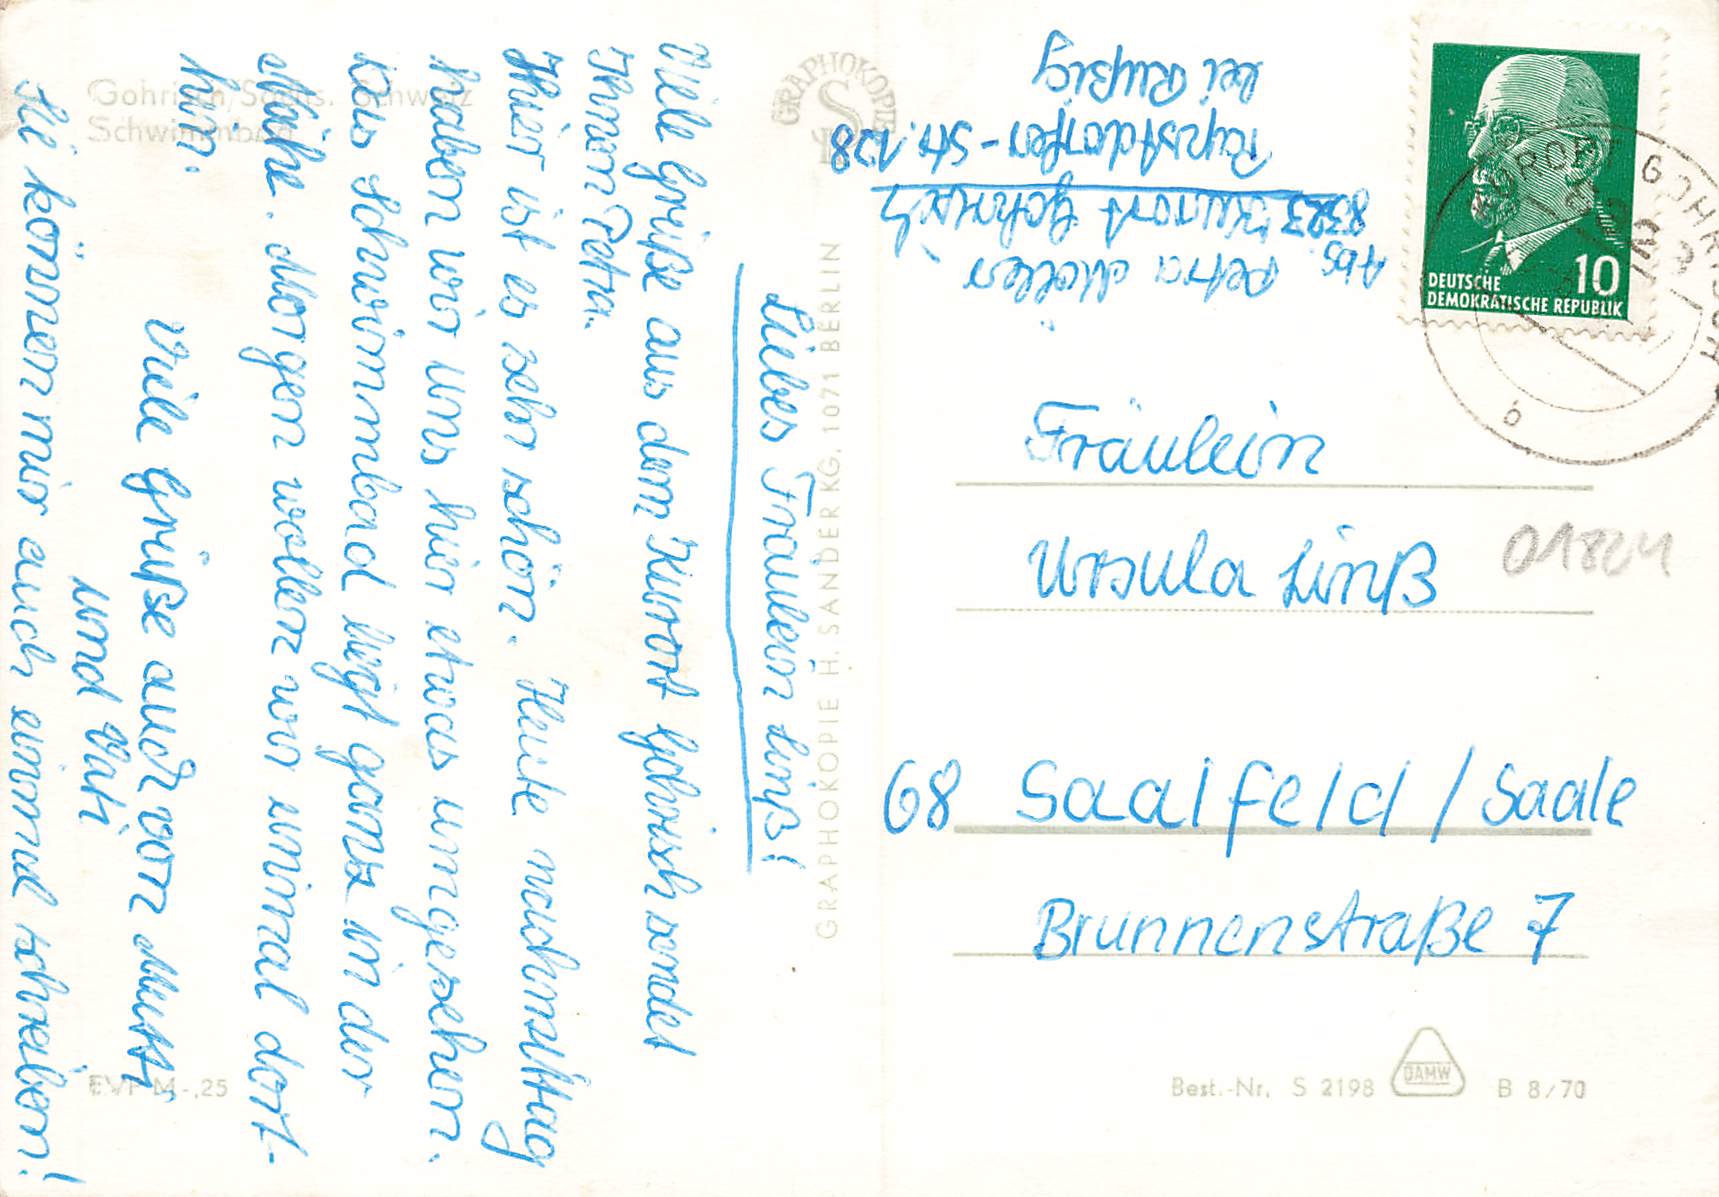 Gohrisch/Sächs. Schweiz
Schwimmbad
Liebes Fräulein Linß!
Viele Grüße aus dem Kurort Gohrisch sendet
Ihnen Petra.
Hier ist es sehr schön. Heute nachmittag
haben wir uns hier etwas umgesehen.
Das Schwimmbad liegt ganz in der
Nähe. Morgen wollen wir einmal dort-
hin.
Viele Grüße auch von Mutti
und Vati
Sie können mir auch einmal schreiben!
EVP M -,25
GRAPHOKOPIE
GRAPHOKOPIE H. SANDER KG, 1071 BERLIN
Abs. Petra Möller
8323 Kurort Gohrisch
-Str. 128
bei
DEUTSCHE
DEMOKRATISCHE REPUBLIK
10
b
Fräulein
Ursula Linß
68 Saalfeld / Saale
Brunnenstraße 7
Best.-Nr. S 2198
DAMW
B 8/70